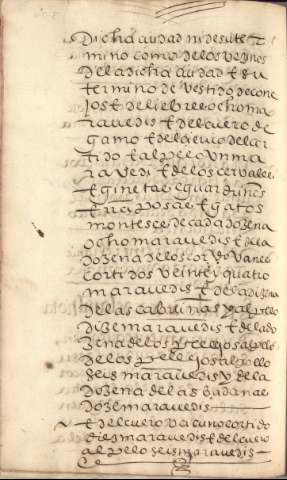 Dicha ciudad ni de su ter
mino como de los vezinos
de la dicha ciudad e de su
termino de vestido de cone
jos e de liebre ocho ma
ravedis e del cuero de
gamo e del cuero del cur
tido e al pelo un ma
ravedi e de los cervales
e ginetas e guarduños
e raposas e gatos
monteses de cada dozena
ocho maravedis e de la
dozena de los cordovanes
cortidos veinte y quatro
maravedis e de la dozena
de las cabrunas y al pelo
doze maravedis e de la do
zena de los
de los pellejos al pelo
seis maravedis y de la
dozena de las badanas
doze maravedis
e del cuero vacuno cortido
diez maravedis e del cuero
al pelo seis maravedis